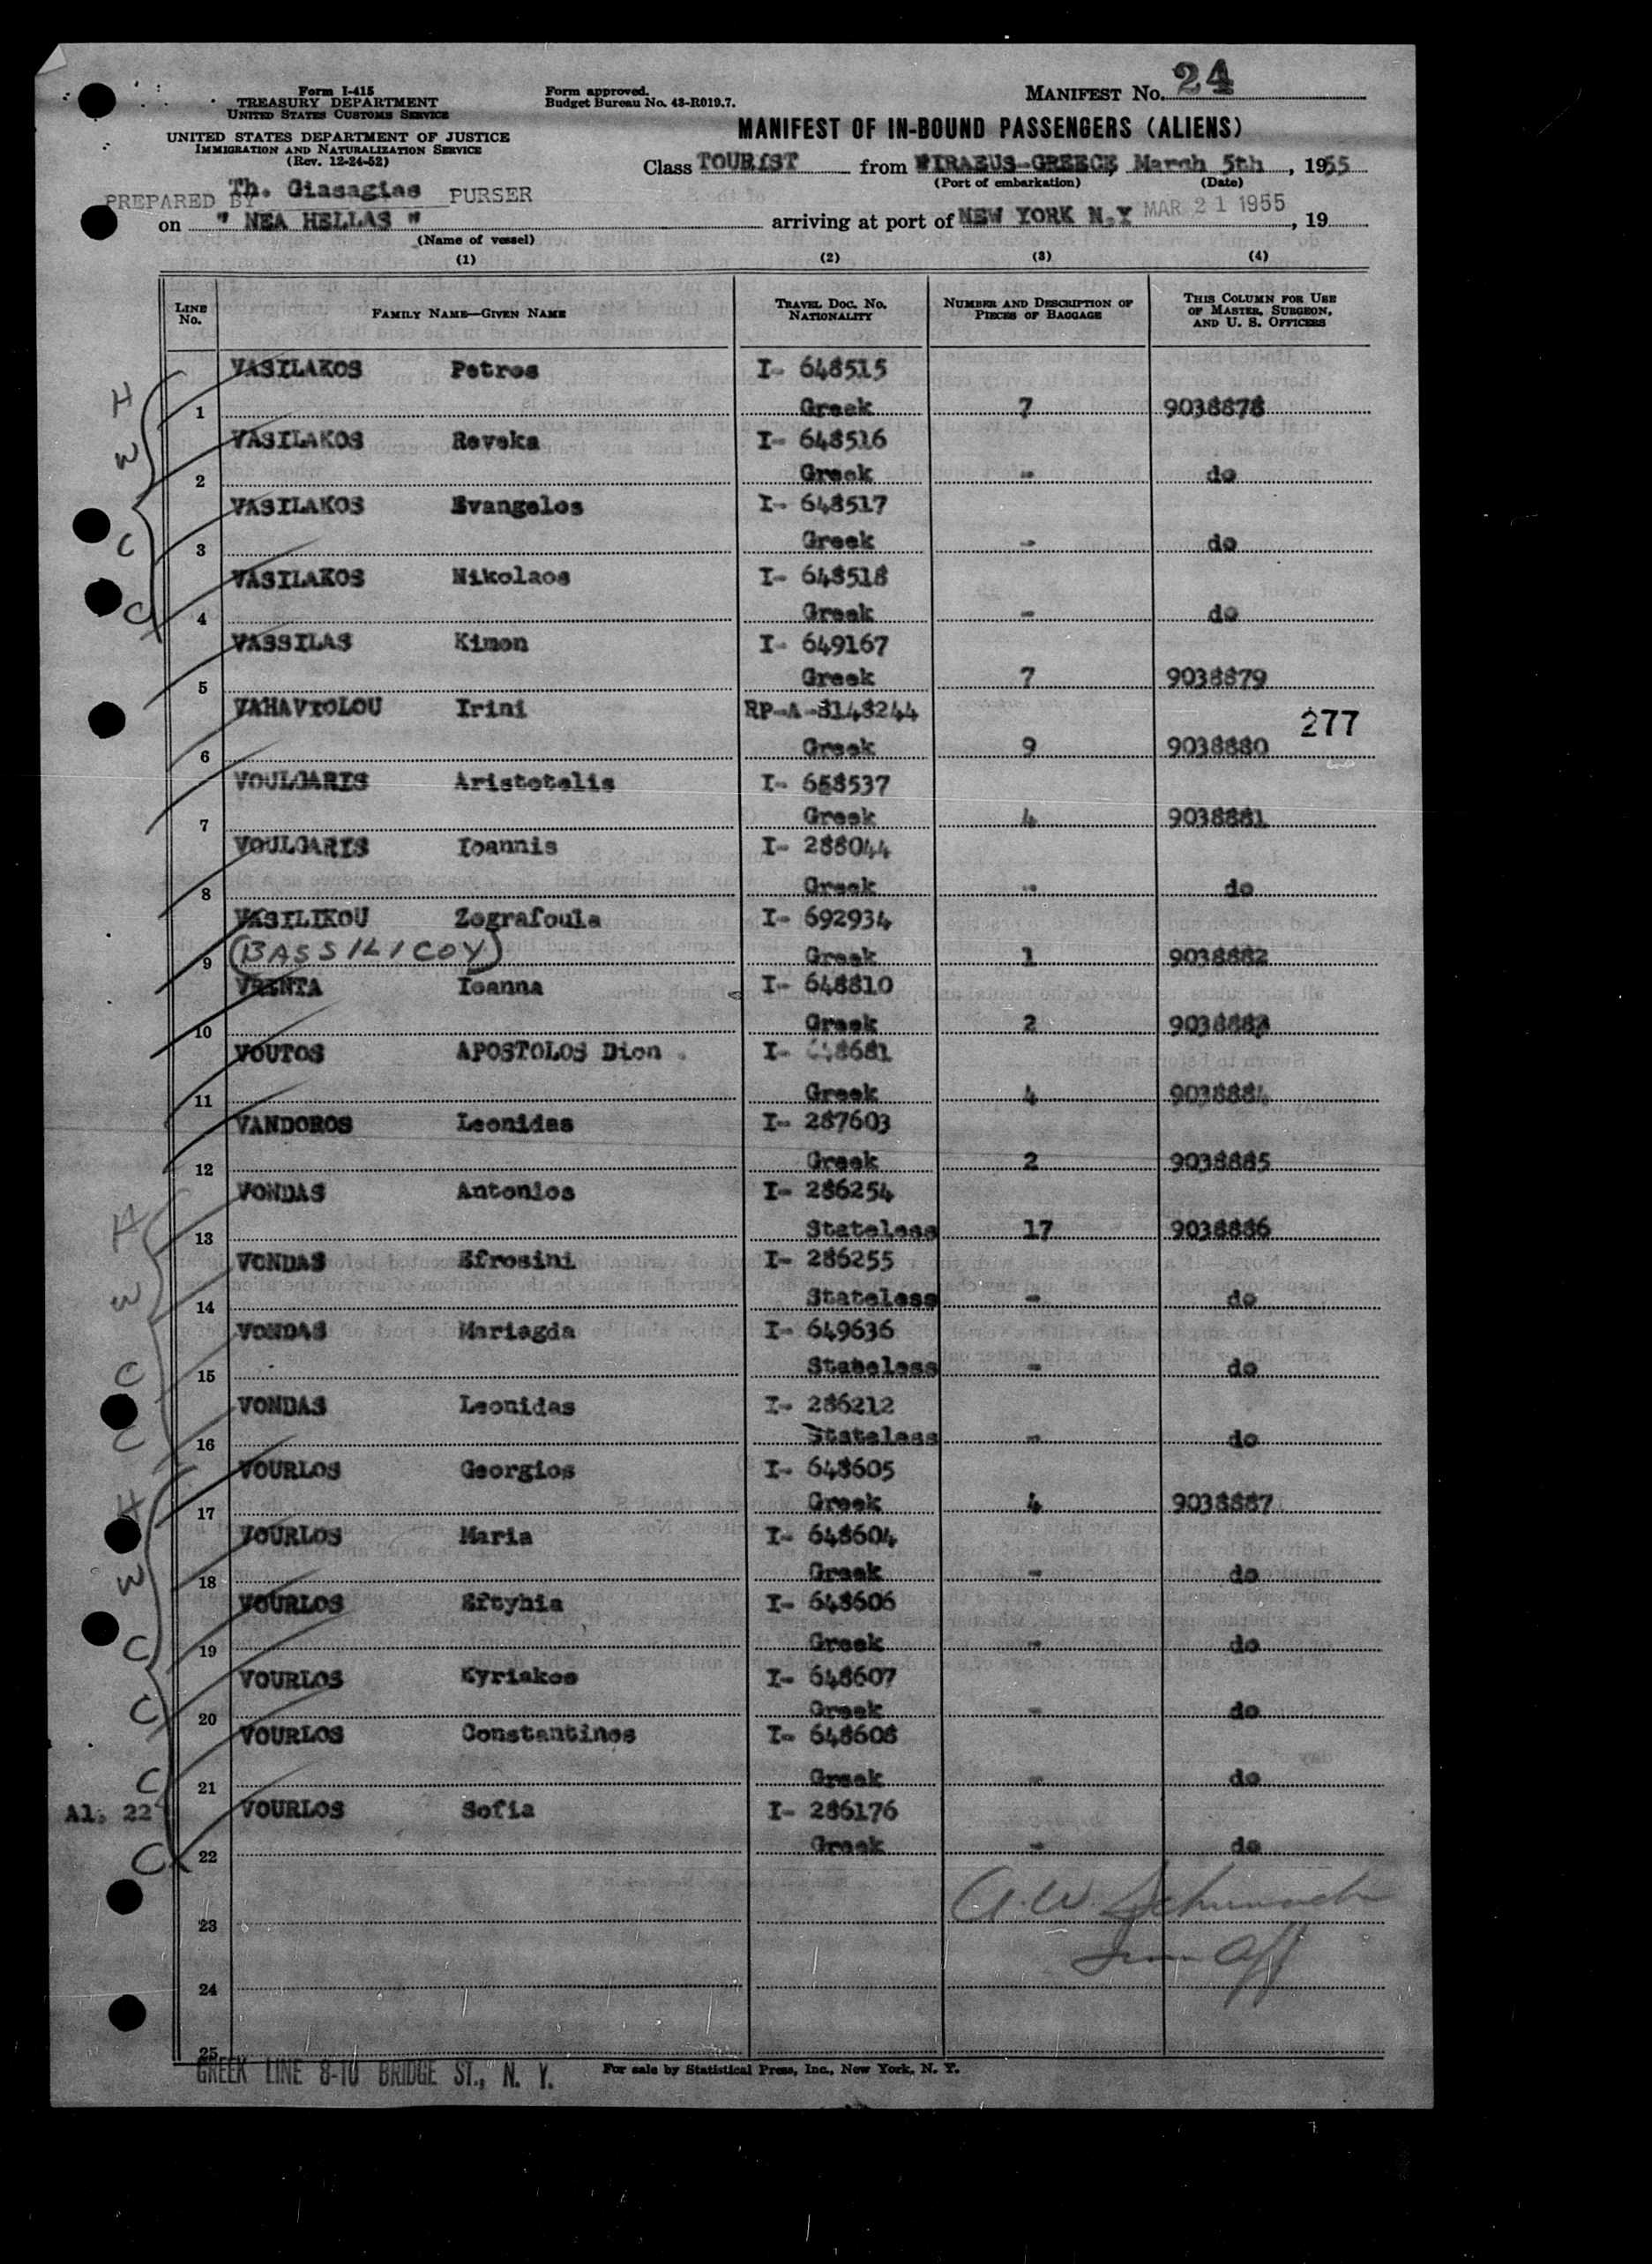 Form I-415
TREASURY DEPARTMENT
UNITED STATES CUSTOMS SERVICE
UNITED STATES DEPARTMENT OF JUSTICE
IMMIGRATION AND NATURALIZATION SERVICE
(Rev. 12-24-52)
Form approved.
Budget Bureau No. 43-R019.7.
MANIFEST No. 24
MANIFEST OF IN-BOUND PASSENGERS (ALIENS)
Class TOURIST from PIRAEUS-GREECE, March 5th, 1955
(Port of embarkation) (Date)
PREPARED BY Th. Giasagias PURSER
on " NEA HELLAS " arriving at port of NEW YORK N.Y MAR 21 1955, 19
(Name of vessel)
(1) (2) (3) (4)
LINE No. FAMILY NAME—GIVEN NAME TRAVEL DOC. No. NATIONALITY NUMBER AND DESCRIPTION OF PIECES OF BAGGAGE THIS COLUMN FOR USE OF MASTER, SURGEON, AND U. S. OFFICERS
H VASILAKOS Petros I- 648515
1 Greek 7 9038878
W VASILAKOS Reveka I- 648516
2 Greek - do
VASILAKOS Evangelos I- 648517
C 3 Greek - do
VASILAKOS Nikolaos I- 648518
C 4 Greek - do
VASSILAS Kimon I- 649167
5 Greek 7 9038879
VAHAVIOLOU Irini RP-A-3148244
277
6 Greek 9 9038880
VOULGARIS Aristotelis I- 658537
7 Greek 4 9038881
VOULGARIS Ioannis I- 288044
8 Greek - do
VASILIKOU Zografoula I- 692934
9 (BASSILICOY) Greek 1 9038882
VRENTA Ioanna I- 648810
10 Greek 2 9038883
VOUTOS APOSTOLOS Dion . I- 648681
11 Greek 4 9038884
VANDOROS Leonidas I- 287603
12 Greek 2 9038885
H VONDAS Antonios I- 286254
13 Stateless 17 9038886
VONDAS Efrosini I- 286255
W 14 Stateless - do
VONDAS Mariagda I- 649636
C 15 Stateless - do
VONDAS Leonidas I- 286212
C 16 Stateless - do
VOURLOS Georgios I- 648605
H 17 Greek 4 9038887
VOURLOS Maria I- 648604
W 18 Greek - do
VOURLOS Eftyhia I- 648606
C 19 Greek - do
VOURLOS Kyriakos I- 648607
C 20 Greek - do
VOURLOS Constantinos I- 648608
C 21 Greek - do
Al: 22 VOURLOS Sofia I- 286176
C 22 Greek - do
A.W. Schumach
23
Imm Off
24
25
GREEK LINE 8-10 BRIDGE ST., N. Y. For sale by Statistical Press, Inc., New York, N. Y.